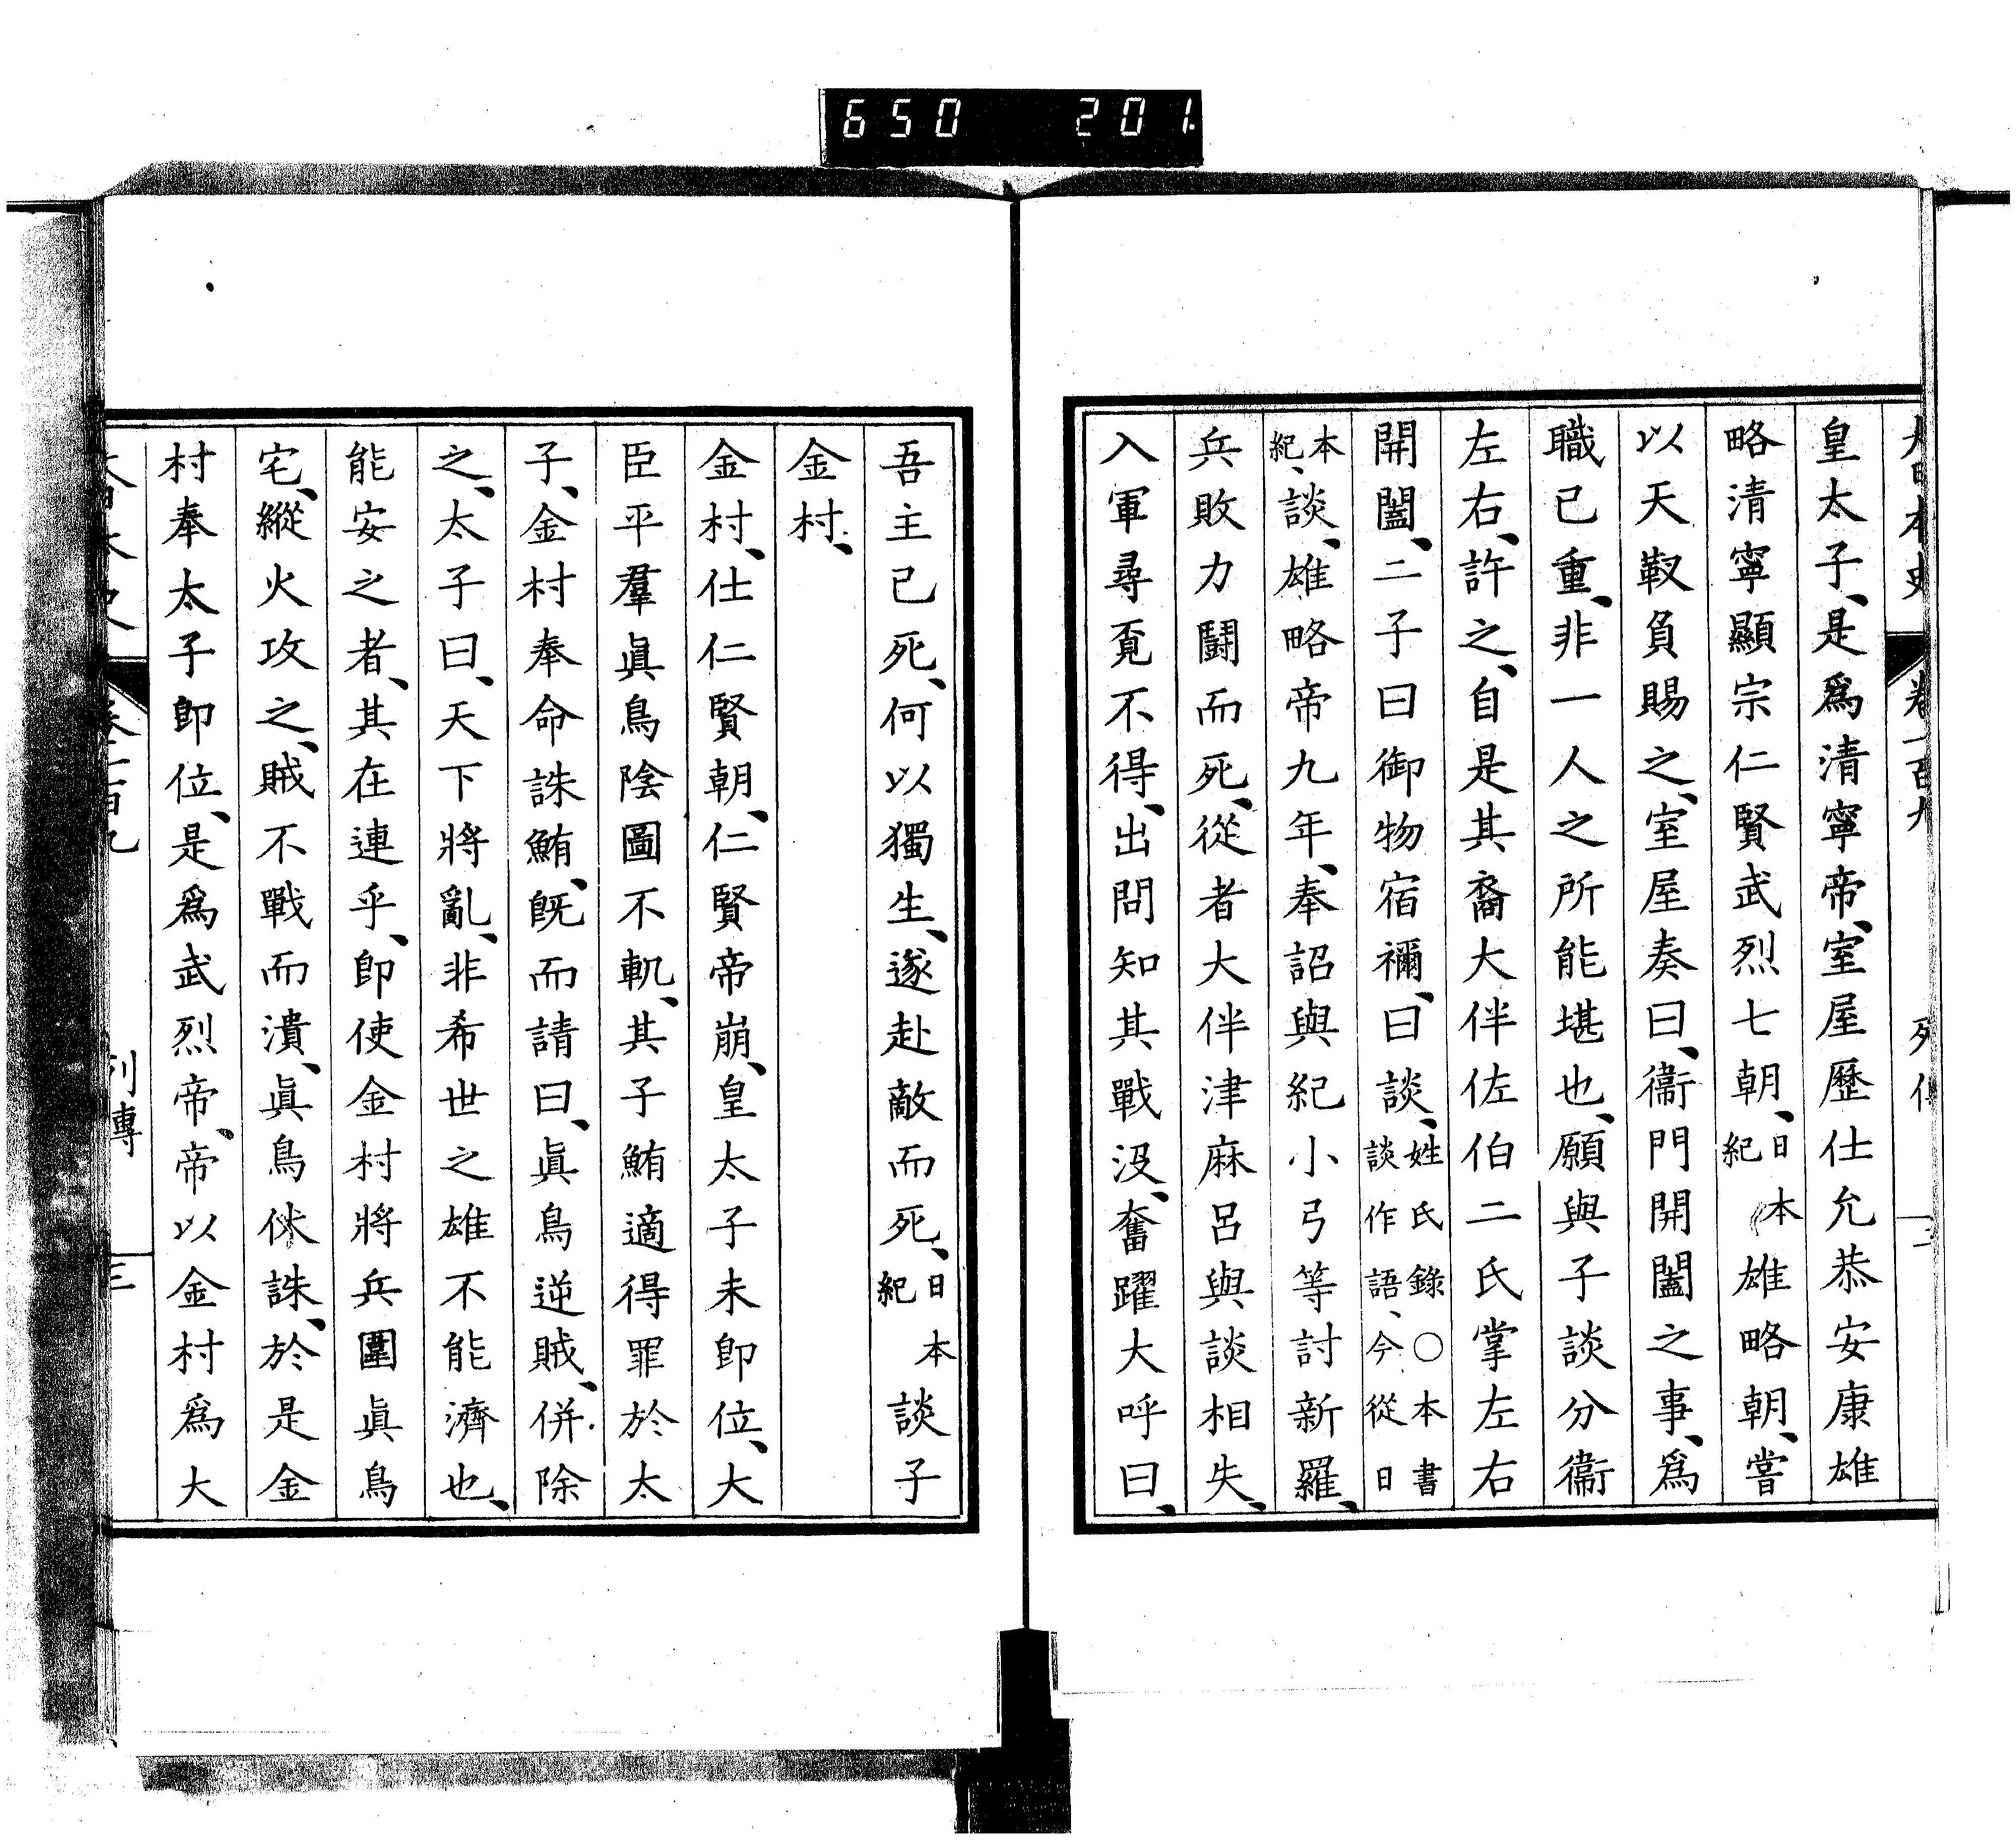 650 201.
皇太子、是爲清寧帝、室屋歷仕允恭安康雄
略清寧顯宗仁賢武烈七朝、日本紀雄略朝、嘗
以天靫負賜之、室屋奏曰、衞門開闔之事、爲
職已重、非一人之所能堪也、願與子談分衞
左右、許之、自是其裔大伴佐伯二氏掌左右
開闔、二子曰御物宿禰、曰談、姓氏錄〇本書談作語、今從日
本紀、談、雄略帝九年、奉詔與紀小弓等討新羅、
兵敗力鬪而死、從者大伴津麻呂與談相失、
入軍尋覓不得、出問知其戰沒、奮躍大呼曰、
吾主已死、何以獨生、遂赴敵而死、日本紀談子
金村、
金村、仕仁賢朝、仁賢帝崩、皇太子未卽位、大
臣平羣眞鳥陰圖不軌、其子鮪適得罪於太
子、金村奉命誅鮪、旣而請曰、眞鳥逆賊、併除
之、太子曰、天下將亂、非希世之雄不能濟也、
能安之者、其在連乎、卽使金村將兵圍眞鳥
宅、縱火攻之、賊不戰而潰、眞鳥伏誅、於是金
村奉太子卽位、是爲武烈帝、帝以金村爲大
列傳 三